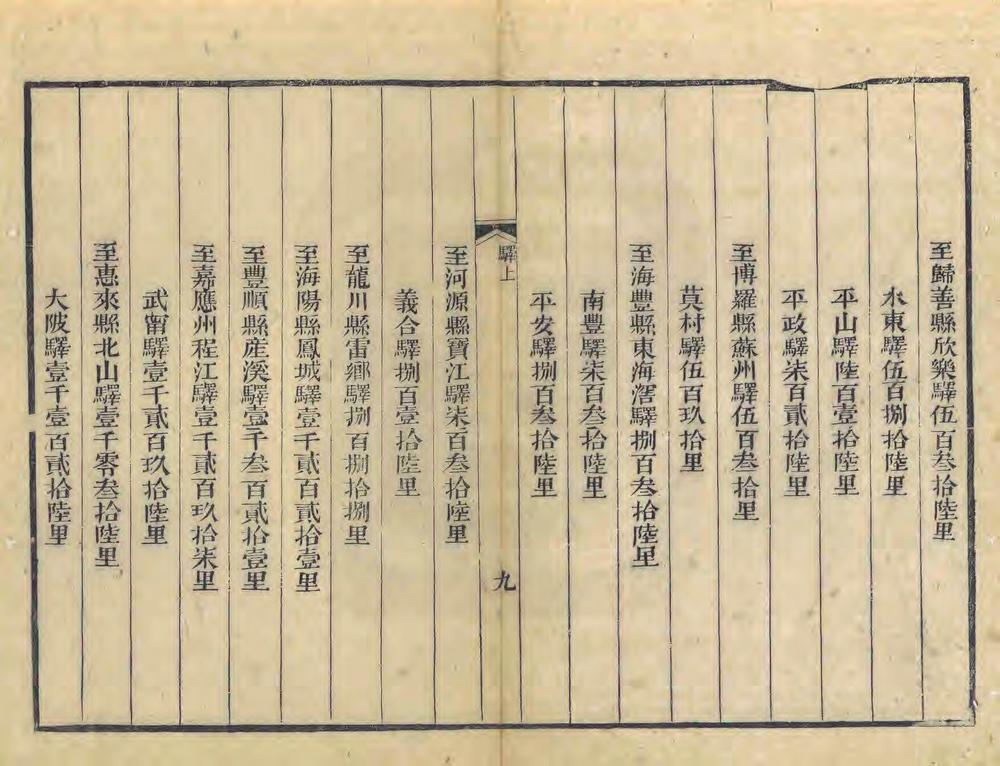 至歸善縣欣樂驛伍百叁拾陸里
水東驛伍百捌拾陸里
平山驛陸百壹拾陸里
平政驛柒百貳拾陸里
至博羅縣蘇州驛伍百叁拾里
莫村驛伍百玖拾里
至海豐縣東海滘驛捌百叁拾陸里
南豐驛柒百叁拾陸里
平安驛捌百叁拾陸里
驛上
九
至河源縣寶江驛柒百叁拾陸里
義合驛捌百壹拾陸里
至龍川縣雷鄉驛捌百捌拾捌里
至海陽縣鳳城驛壹千貳百貳拾壹里
至豐順縣産溪驛壹千叁百貳拾壹里
至嘉應州程江驛壹千貳百玖拾柒里
武甯驛壹千貳百玖拾陸里
至惠來縣北山驛壹千零叁拾陸里
大陂驛壹千壹百貳拾陸里